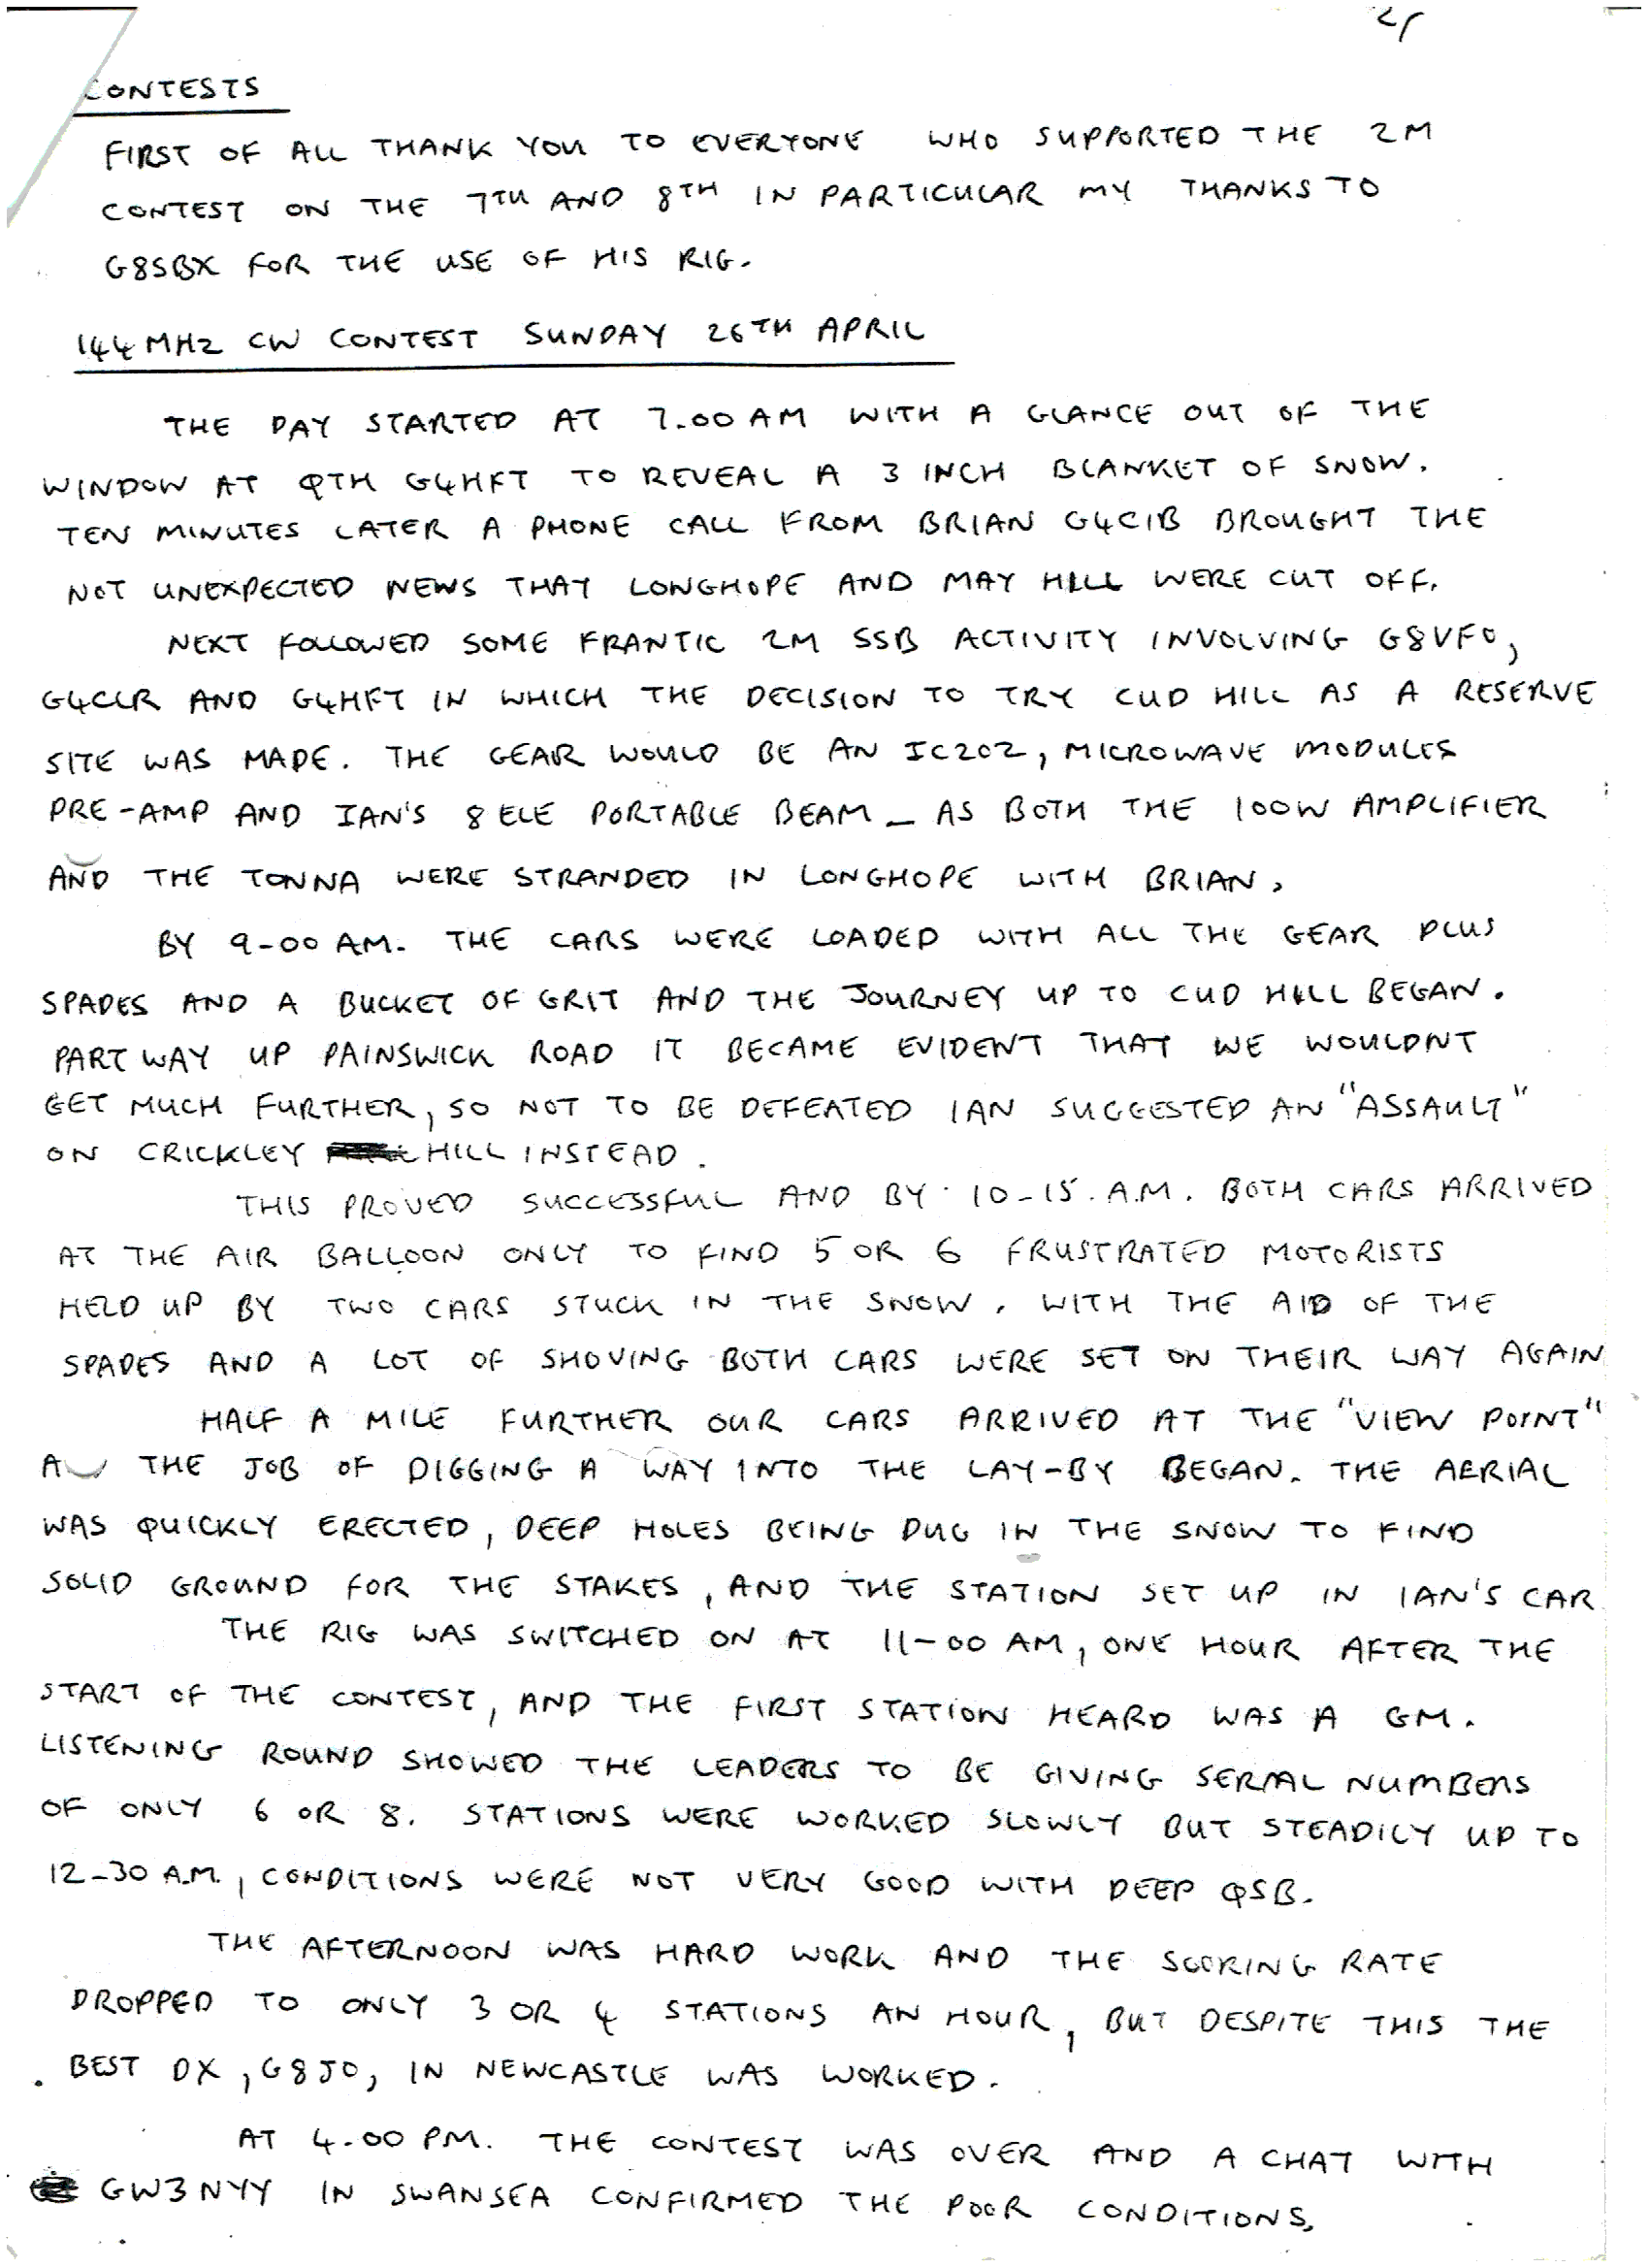 2/
CONTESTS
FIRST OF ALL THANK YOU TO EVERYONE WHO SUPPORTED THE 2M
CONTEST ON THE 7TH AND 8TH IN PARTICULAR MY THANKS TO
G8SBX FOR THE USE OF HIS RIG.
144MHZ CW CONTEST SUNDAY 26TH APRIL
THE DAY STARTED AT 7.00 AM WITH A GLANCE OUT OF THE
WINDOW AT QTH G4HFT TO REVEAL A 3 INCH BLANKET OF SNOW.
TEN MINUTES LATER A PHONE CALL FROM BRIAN G4CIB BROUGHT THE
NOT UNEXPECTED NEWS THAT LONGHOPE AND MAY HILL WERE CUT OFF.
NEXT FOLLOWED SOME FRANTIC 2M SSB ACTIVITY INVOLVING G8VFO,
G4CLR AND G4HFT IN WHICH THE DECISION TO TRY CUD HILL AS A RESERVE
SITE WAS MADE. THE GEAR WOULD BE AN IC202, MICROWAVE MODULES
PRE-AMP AND IAN'S 8 ELE PORTABLE BEAM - AS BOTH THE 100W AMPLIFIER
AND THE TONNA WERE STRANDED IN LONGHOPE WITH BRIAN.
BY 9-00 AM. THE CARS WERE LOADED WITH ALL THE GEAR PLUS
SPADES AND A BUCKET OF GRIT AND THE JOURNEY UP TO CUD HILL BEGAN.
PART WAY UP PAINSWICK ROAD IT BECAME EVIDENT THAT WE WOULDNT
GET MUCH FURTHER, SO NOT TO BE DEFEATED IAN SUGGESTED AN "ASSAULT"
ON CRICKLEY HILL INSTEAD.
THIS PROVED SUCCESSFUL AND BY 10-15. A.M. BOTH CARS ARRIVED
AT THE AIR BALLOON ONLY TO FIND 5 OR 6 FRUSTRATED MOTORISTS
HELD UP BY TWO CARS STUCK IN THE SNOW. WITH THE AID OF THE
SPADES AND A LOT OF SHOVING BOTH CARS WERE SET ON THEIR WAY AGAIN
HALF A MILE FURTHER OUR CARS ARRIVED AT THE "VIEW POINT"
A THE JOB OF DIGGING A WAY INTO THE LAY-BY BEGAN. THE AERIAL
WAS QUICKLY ERECTED, DEEP HOLES BEING DUG IN THE SNOW TO FIND
SOLID GROUND FOR THE STAKES, AND THE STATION SET UP IN IAN'S CAR
THE RIG WAS SWITCHED ON AT 11-00 AM, ONE HOUR AFTER THE
START OF THE CONTEST, AND THE FIRST STATION HEARD WAS A GM.
LISTENING ROUND SHOWED THE LEADERS TO BE GIVING SERIAL NUMBERS
OF ONLY 6 OR 8. STATIONS WERE WORKED SLOWLY BUT STEADILY UP TO
12-30 A.M., CONDITIONS WERE NOT VERY GOOD WITH DEEP QSB.
THE AFTERNOON WAS HARD WORK AND THE SCORING RATE
DROPPED TO ONLY 3 OR 4 STATIONS AN HOUR, BUT DESPITE THIS THE
BEST DX, G8JO, IN NEWCASTLE WAS WORKED.
AT 4.00 PM. THE CONTEST WAS OVER AND A CHAT WITH
GW3NYY IN SWANSEA CONFIRMED THE POOR CONDITIONS.